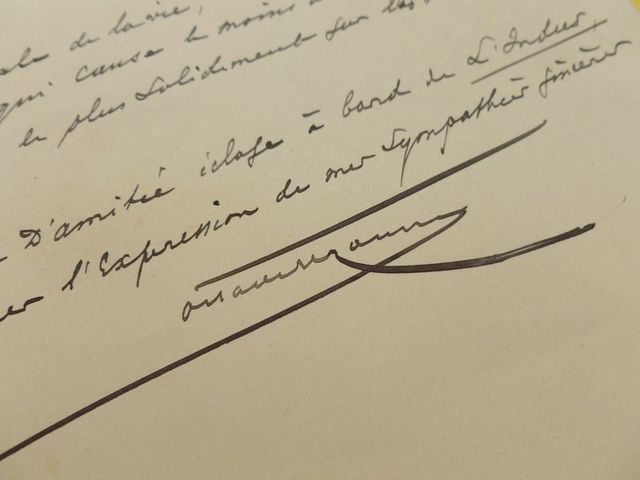 de la vie,
qui cause le moins
le plus solidement sur les
D'amitié éclose à bord de L'Indus,
l'Expression de mes sympathies sincères